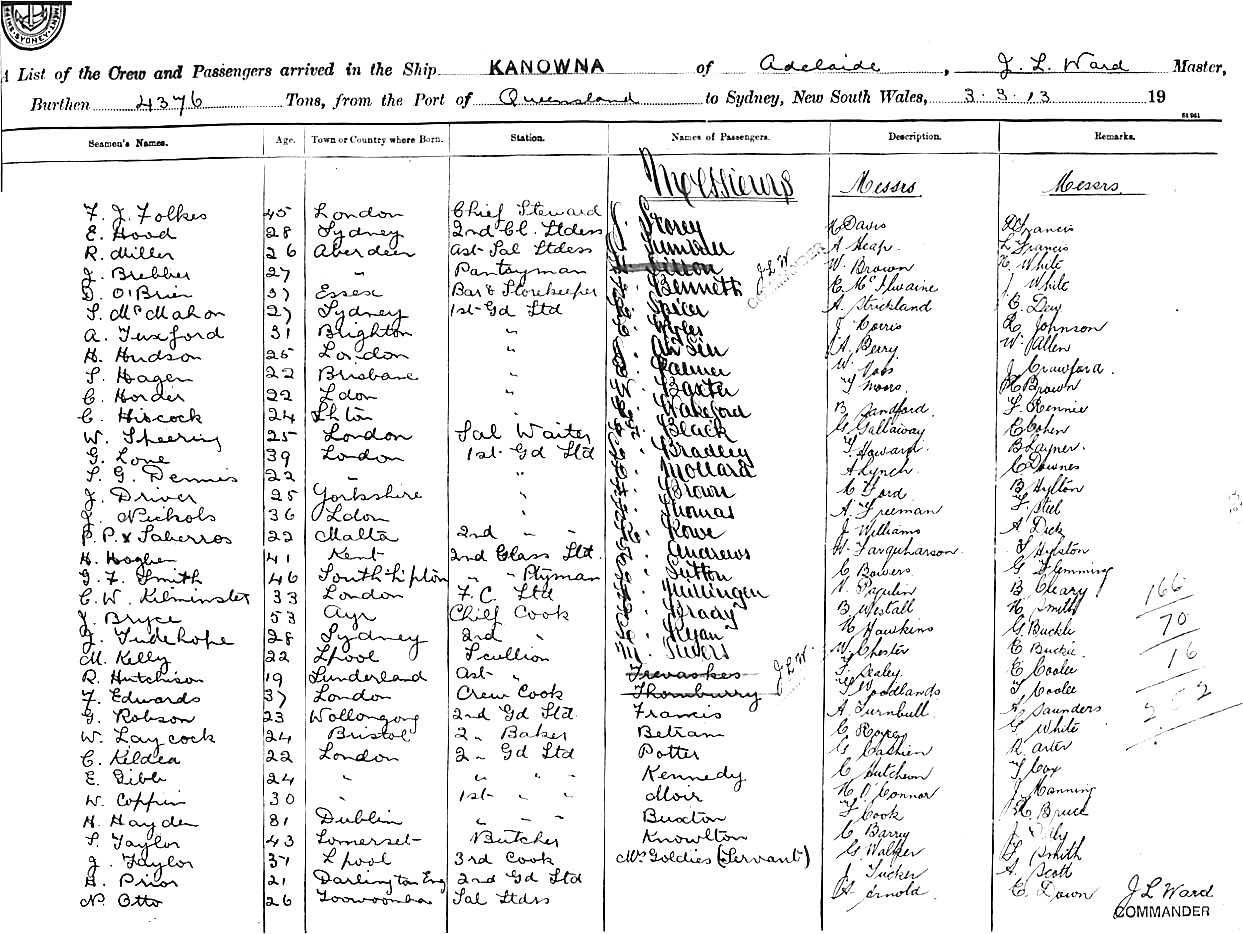 A List of the Crew and Passengers arrived in the Ship KANOWNA of Adelaide, J. L. Ward Master,
Burthen 4376 Tons, from the Port of Queensland to Sydney, New South Wales, 3.3.13 19
Seamen's Names. Age. Town or Country where Born. Station. Names of Passengers. Description. Remarks.
Messieurs Messrs Messrs.
F. J. Folkes 45 London Chief Steward Storey H Davis Francis
E. Hood 28 Sydney 2nd Cl. Stdess A Heap. L Francis
R. Miller 26 Aberdeen Ast Sal Stdess W. Brown White
J. Brebber 27 " Pantryman Bennett J. L. W. COMMANDER E McIlwaine J White
D. O'Brien 37 Essex Bar & Storekeeper Spicer A. Strickland C Day
S. McMahon 27 Sydney 1st Gd Std J Corris R. Johnson
A. Tuxford 31 Brighton " Ah Sin A. Berry W. Allen
H. Hudson 25 London " Palmer W. Voss J Crawford.
S. Hagen 22 Brisbane " Baxter T Moors. H Brown
C. Horder 22 Ldon " Wakeford B Sandford. F. Rennie
C. Hiscock 24 Black G Gallaway C Cohen
W. Sheering 25 London Sal Waiter Bradley T. Howard. B Layner.
G. Love 39 London 1st Gd Std Mollard A Lynch. C Downes
S. G. Dennis 22 " " Brown C Ford. B Hylton
J. Driver 25 Yorkshire " Thomas A. Freeman
J. Nichols 36 Ldon " Rowe J Williams A Dick
P. P. x Saberros 22 Malta 2nd " " Andrews W. Farquharson. S Hylston
H. Hogben 41 Kent 2nd Class Std. Sutton C Bowers G Flemming
G. F. Smith 46 Southhipton " " Ptyman Mullingen Papulin B Cleary
C. W. Kilminster 33 London F. C. Std Brady B Westall Smith
J. Bryce 53 Ayr Chief Cook Ryan H Hawkins G Buckle
J. Tudehope 28 Sydney 2nd " Sievers W Chester E Buckie
M. Kelly 22 Lpool Scullion Trevaskes J. L. W. Sealey E Coolee
R. Hutchison 19 Sunderland Ast " Thornburry Woodlands T Coolee
F. Edwards 37 London Crew Cook Francis A Turnbull. Saunders
G. Robson 23 Wollongong 2nd Gd Std. Betram C Roper G White
W. Laycock 24 Bristol 2" Baker Potter G Cashien R. arter
C. Kildea 22 London 2" Gd Std Kennedy C Hutcheon T Cox
E. Gibb 24 " " " " Moir H O'Connor J Manning
W. Coppin 30 " 1st " " Buxton T Cook H Bruce
H. Hayden 31 Dublin " " " Knowlton C Barry
S. Taylor 43 Somerset Butcher Mrs Goldies (Servant) G. Walker Smith
J. Taylor 37 Lpool 3rd Cook J Tucker A. Scott
H. Prior 21 Darlington Eng 2nd Gd Std A Arnold. C. Down
N. Otto 26 Toowoomba Sal Stdss
166
70
16
252
J L Ward
COMMANDER